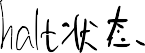 halt状态、